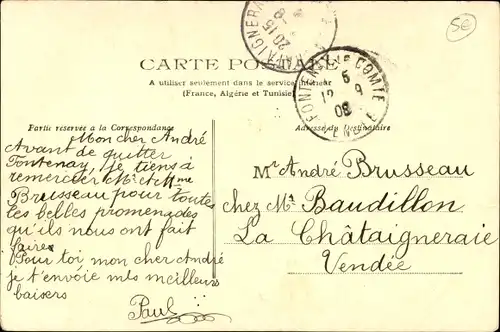 5€
CHATAIGNERAIE
20 15
CARTE POSTALE
A utiliser seulement dans le service intérieur
(France, Algérie et Tunisie)
FONTENAY LE COMTE
5
12 9
08
Partie reservée a la Correspondance
Adresse du Destinataire
Mon cher André
Avant de quitter
Fontenay, je tiens à
remercier Mr et Mme
Brusseau pour toutes
les belles promenades
qu'ils nous ont fait
faire.
Pour toi mon cher André
je t'envoie mes meilleurs
baisers
Paul
Mr André Brusseau
chez Mr Baudillon
La Châtaigneraie
Vendée